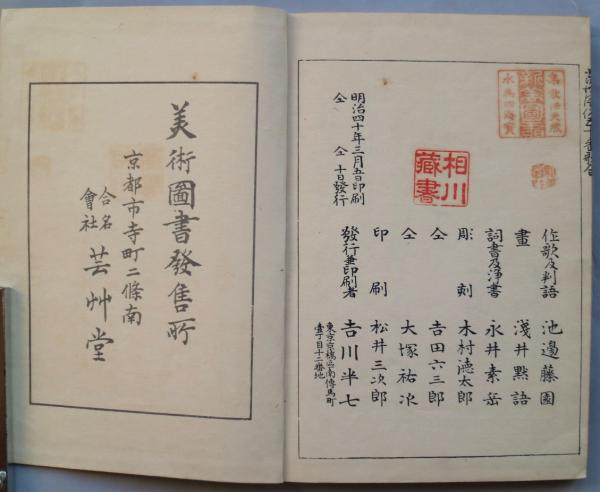 相川
藏書
作歌及判語 池邊藤園
畫 淺井黙語
詞書及淨書 永井素岳
彫刻 木村德太郎
仝 吉田六三郎
仝 大塚祐次
印刷 松井三次郎
發行兼印刷者 吉川半七
東京京橋區南傳馬町
壹丁目十二番地
明治四十年三月五日印刷
仝 仝 十日發行
美術圖書發售所
京都市寺町二條南
合名
會社 芸艸堂